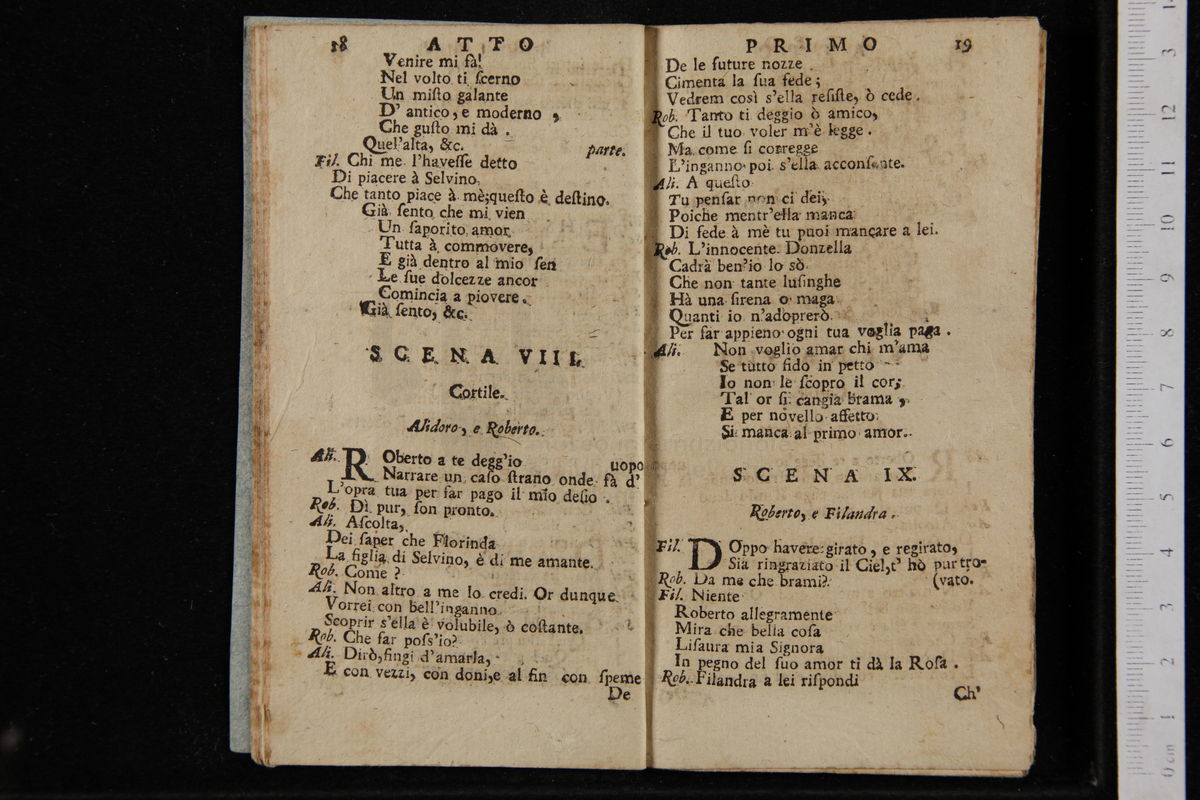 18 ATTO
Venire mi fà!
Nel volto ti ſcerno
Un miſto galante
D' antico, e moderno,
Che guſto mi dà.
Quel'alta, &c. parte.
Fil. Chi me l'haveſſe detto
Di piacere à Selvino,
Che tanto piace à mè;queſto è deſtino.
Già ſento che mi vien
Un ſaporito amor
Tutta à commovere,
E già dentro al mio ſen
Le ſue dolcezze ancor
Comincia a piovere.
Già ſento, &c.
SCENA VIII.
Cortile.
Alidoro, e Roberto.
Ali. ROberto a te degg'io uopo
Narrare un caſo ſtrano onde fà d'
L'opra tua per far pago il mio deſio.
Rob. Dì pur, ſon pronto.
Ali. Aſcolta,
Dei ſaper che Florinda
La figlia di Selvino, è di me amante.
Rob. Come?
Ali. Non altro a me lo credi. Or dunque
Vorrei con bell'inganno
Scoprir s'ella è volubile, ò coſtante.
Rob. Che far poſs'io?
Ali. Dirò,fingi d'amarla,
E con vezzi, con doni,e al fin con ſpeme
De
PRIMO 19
De le future nozze
Cimenta la ſua fede;
Vedrem così s'ella reſiſte, ò cede.
Rob. Tanto ti deggio ò amico,
Che il tuo voler m'è legge.
Ma come ſi corregge
L'inganno poi s'ella acconſente.
Ali. A queſto
Tu penſar non ci dei,
Poiche mentr'ella manca
Di fede à mè tu puoi mancare a lei.
Rob. L'innocente Donzella
Cadrà ben'io lo sò
Che non tante luſinghe
Hà una ſirena o maga
Quanti io n'adoprerò
Per far appieno ogni tua voglia paga.
Ali. Non voglio amar chi m'ama
Se tutto fido in petto
Io non le ſcopro il cor;
Tal or ſi cangia brama,
E per novello affetto
Si manca al primo amor.
SCENA IX.
Roberto, e Filandra.
Fil. DOppo havere girato, e regirato,
Sia ringraziato il Ciel,t' hò pur tro-
Rob. Da me che brami? (vato.
Fil. Niente
Roberto allegramente
Mira che bella coſa
Liſaura mia Signora
In pegno del ſuo amor ti dà la Roſa.
Rob. Filandra a lei riſpondi
Ch'
0 cm 1 2 3 4 5 6 7 8 9 10 11 12